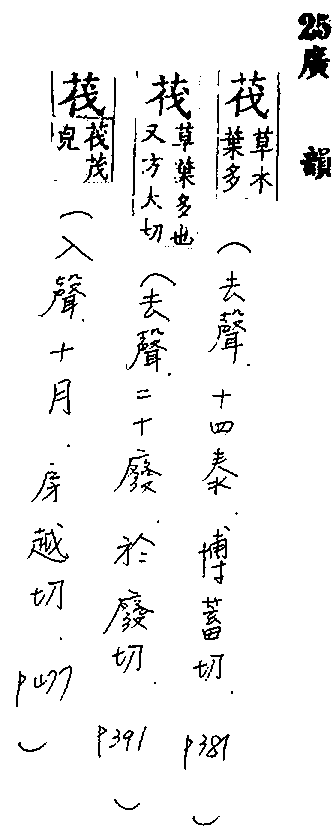 25廣韻
茷草木葉多(去聲.十四泰.博蓋切.P381)
茷草葉多也又方大切(去聲.二十廢.於廢切.P391)
茷茷茂皃(入聲十月.房越切.P477)